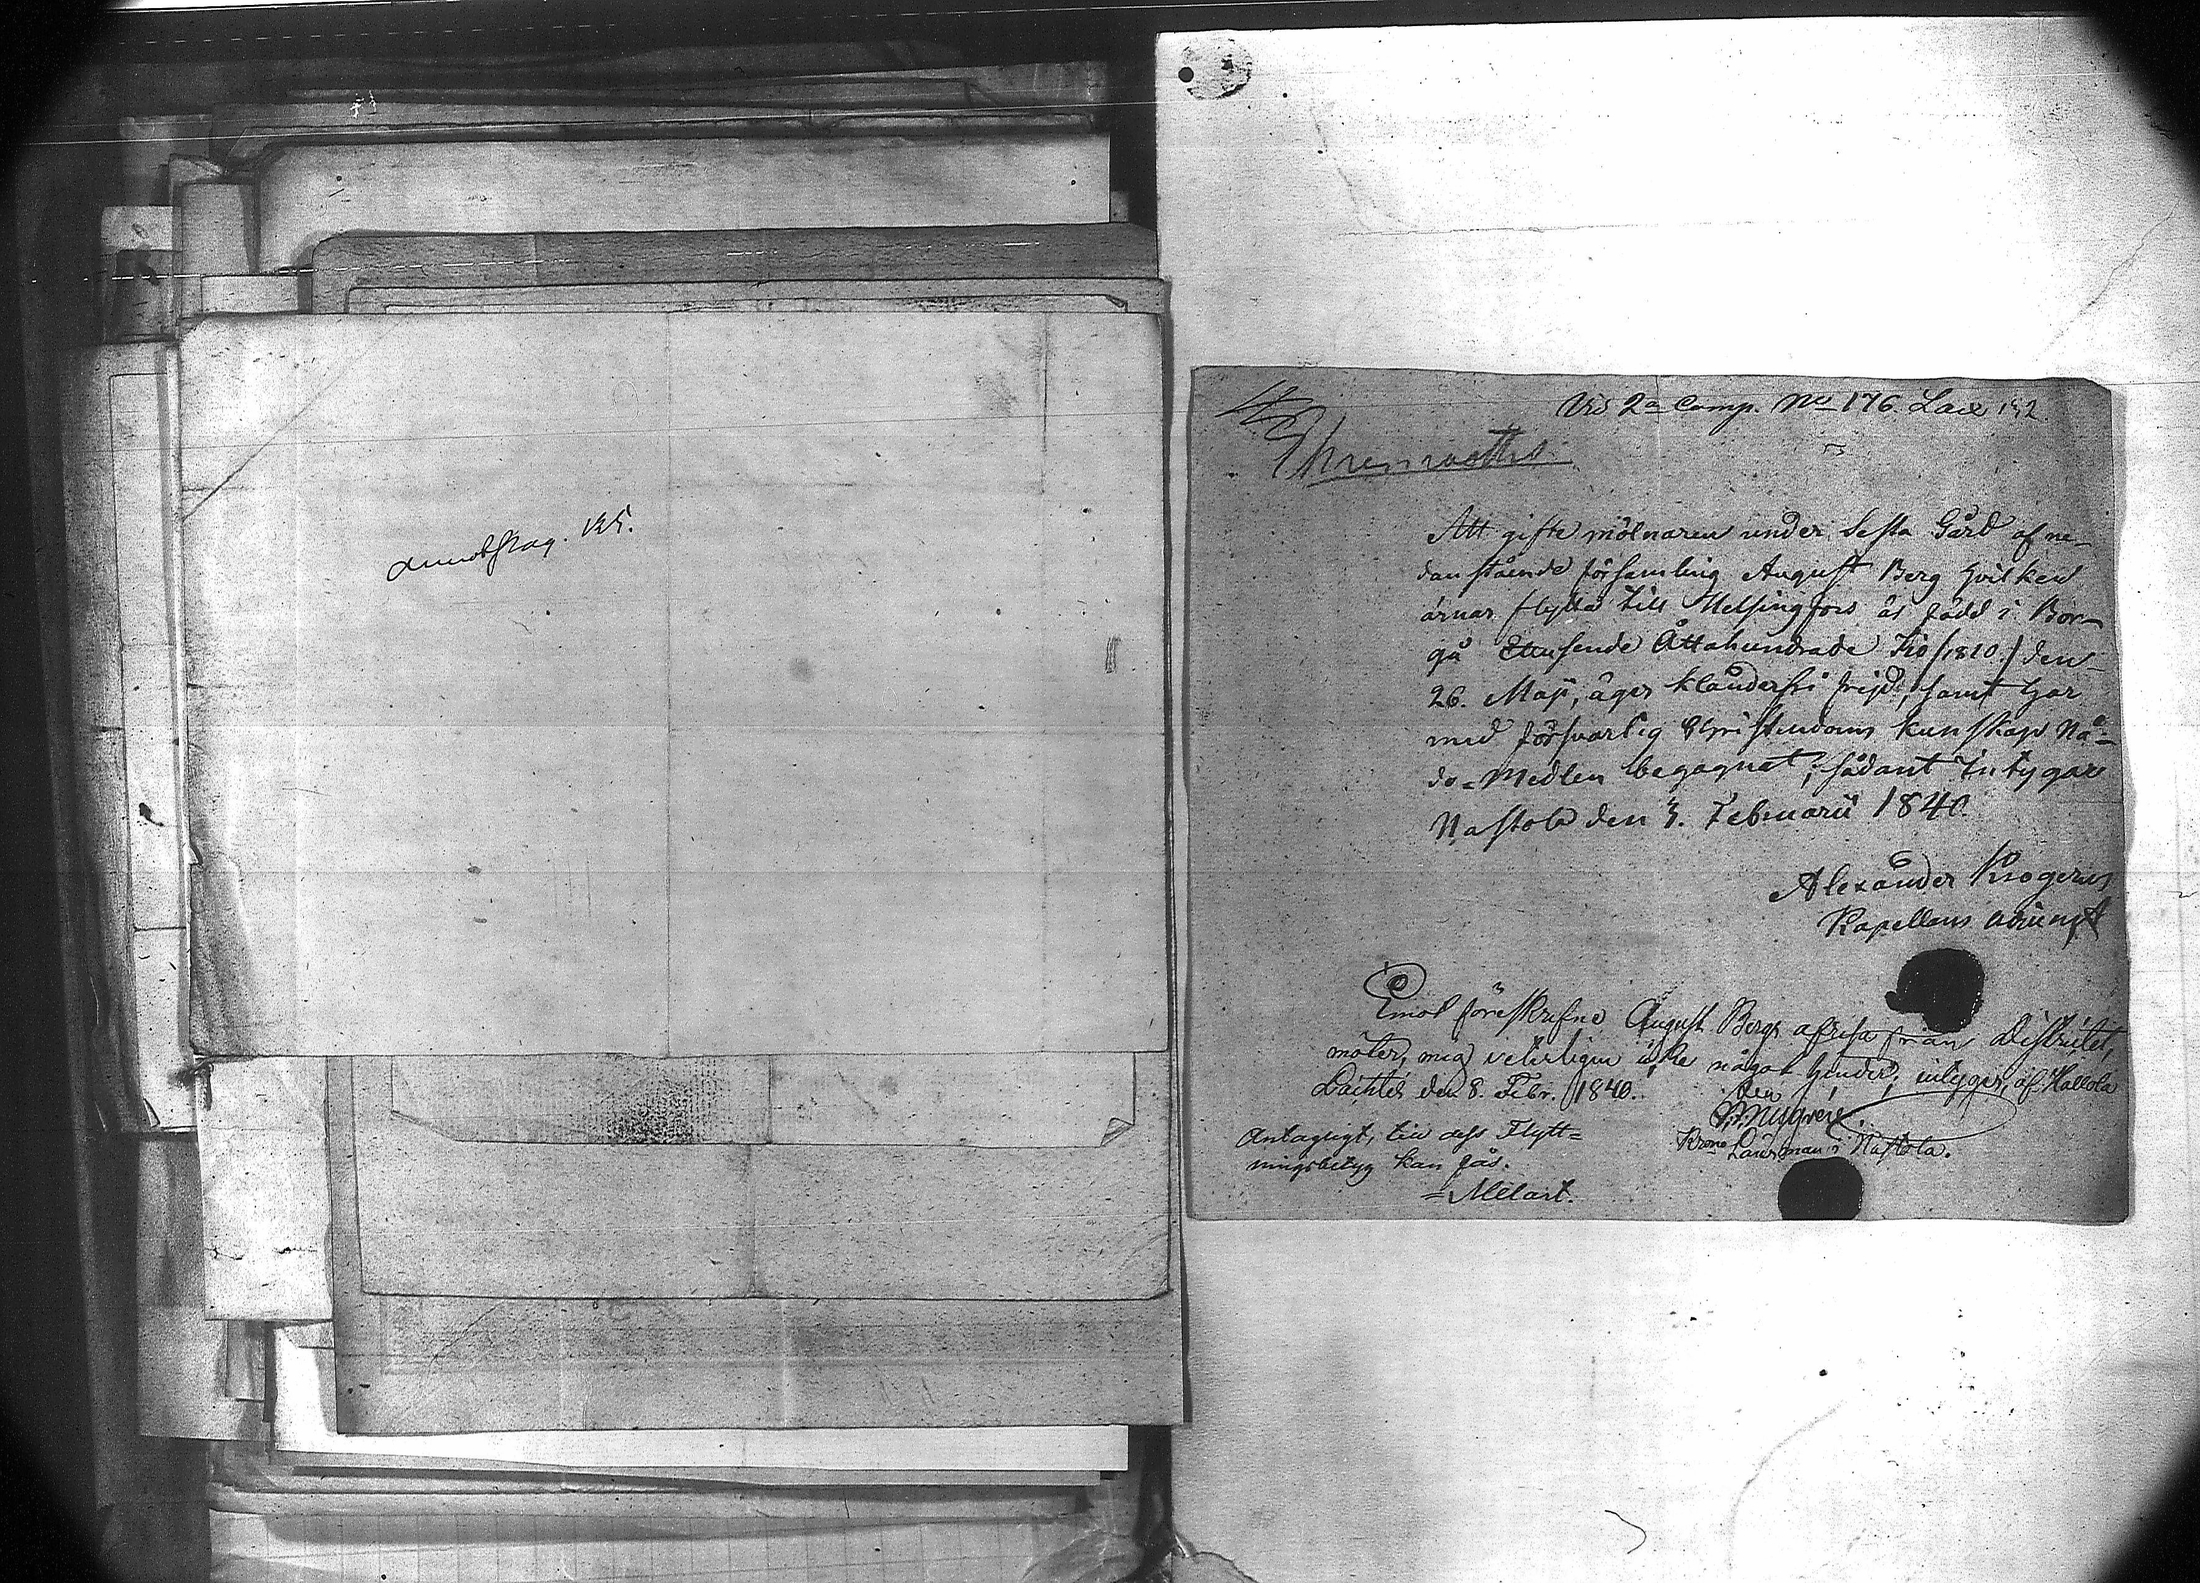 Vid 2a Comp. No 176. Lact 192
Ehrenrooths
Att gifte mölnaren under Sesta Gård af ne-
dan stående församling August Berg hvilken
ärnar flytta till Helsingfors är född i Bor-
gå Ettusende Åttahundrade Tio /1810./ den
26. Maji, äger klanderfri frejd, samt har
med försvarlig Christendoms kunskap Nå-
de-Medlen begagnat; sådant Intygar
Nastola den 3. Februarii 1840.
Alexander Krogerus
Kapellans adjungt
Emot föreskrefne August Bergs afresa från Districtet,
möter, mig veterligen icke något hinder; intygar, af Hollola
Lachtis den 8. Febr. 1840.
Krono Länsman i Nastola.
Antagligt, till dess Flytt=
ningsbetyg kan fås.
=Melart.